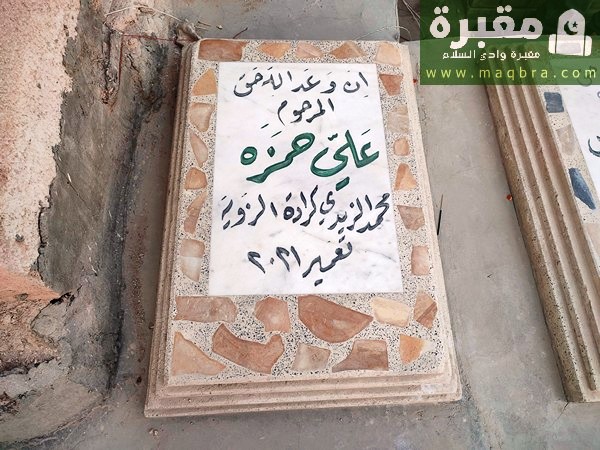 مقبرة
مقبرة وادي السلام
www.maqbra.com
إن وعد الله حق
المرحوم
علي حمزه
محمد الزيدي كرادة الزوية
تعمير ٢٠٢١